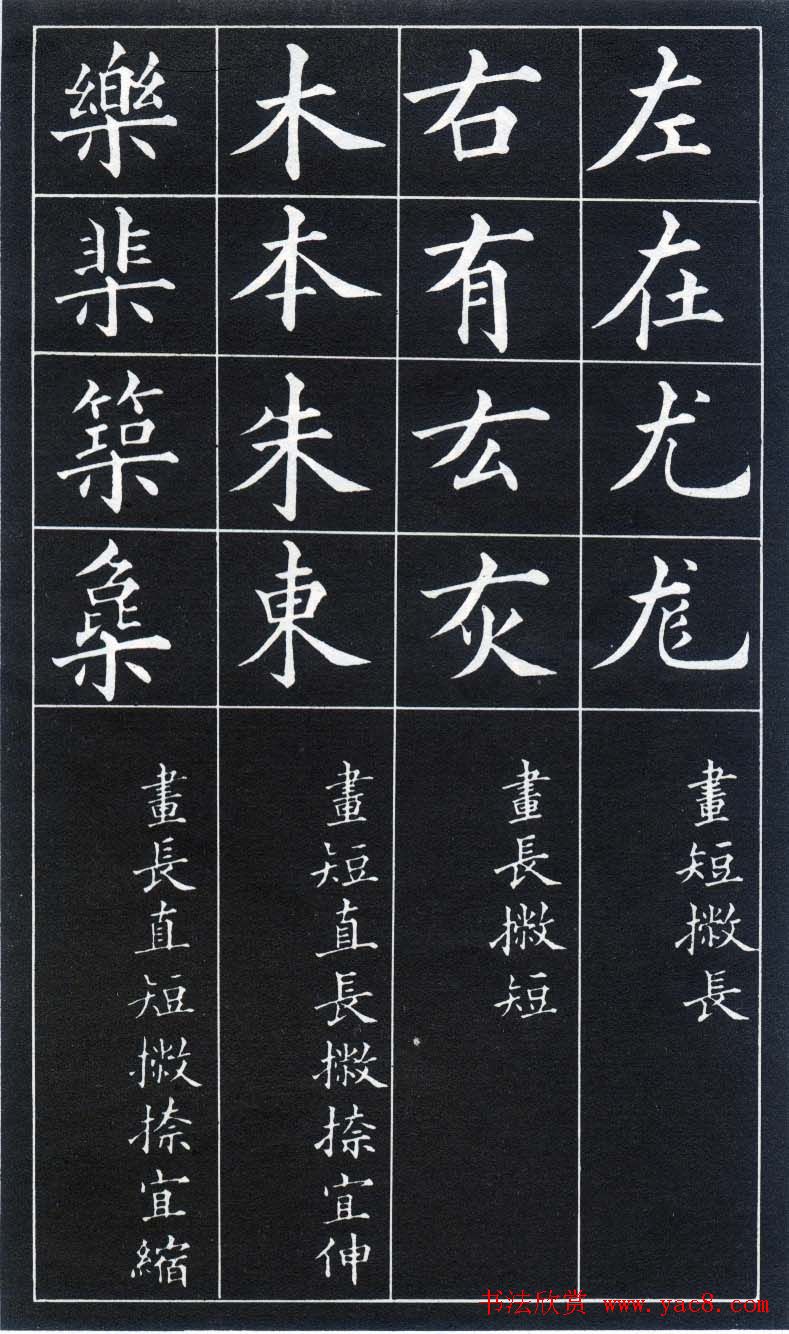 左在尤
畫短撇長
右有厷灰
畫長撇短
木本朱東
畫短直長撇捺宜伸
樂棐築
畫長直短撇捺宜縮
书法欣赏 www.yac8.com